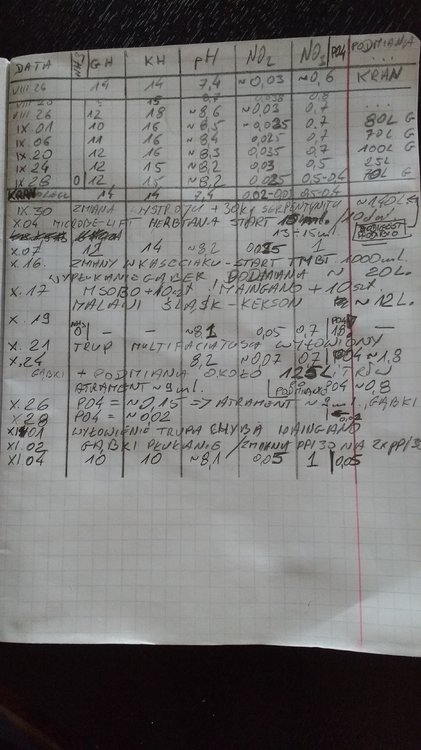 DATA NH3 GH KH pH NO2 NO3 PO4 PODMIANA
VIII.26 14 14 7,4 ~0,03 ~0,6 KRAN
VIII.26 12 18 ~8,6 ~0,03 0,7 ...
IX.01 10 16 ~8,5 ~0,025 0,7 80L G
IX.06 11 16 ~8,4 0,025 0,7 70L G
IX.20 12 16 ~8,3 0,035 0,7 100L G
IX.24 12 15 ~8,2 0,03 0,5 25L
IX.28 0 12 15 ~8,2 0,025 0,5-0,4 70L G
KRAN 14 14 7,4
IX.30 ZMIANA WYSTROJU + 30kg SERPENTYNITU ~140L
X.04 MICROBE-LIFT HERBTANA START /10dni
13-15ml
X.07 12 14 ~8,2 0,025 1
X.16. ZMIANY W KASECIAKU - START TMBT 1000ml.
WYPŁUKANIE GĄBEK PODMIANA ~20L.
X.17 MSOBO +10szt / MAINGANO +10szt
MALAWI ŚLĄSK - KEKSON ~12L.
X.19 NH3 0 - - ~8,1 0,05 0,7 PO4 1,8 -
X.21 TRUP MULTIFACIATUSA WYŁOWIONY
X.24 8,2 ~0,07 0,7 PO4 ~1,8
GĄBKI + PODMIANA OKOŁO 125L
ATRAMENT ~9ml. PODMIANIE PO4 ~0,8
X.26 PO4 = ~0,15 => ATRAMENT GĄBKI
X.28 PO4 = ~0,02
XI.01 WYŁOWIENIE TRUPA CHYBA MAINGANO
XI.02 GĄBKI PŁUKANIE / ZMIANA PPI 30 NA 2x PPI/30
XI.04 10 10 ~8,1 0,05 1 0,05